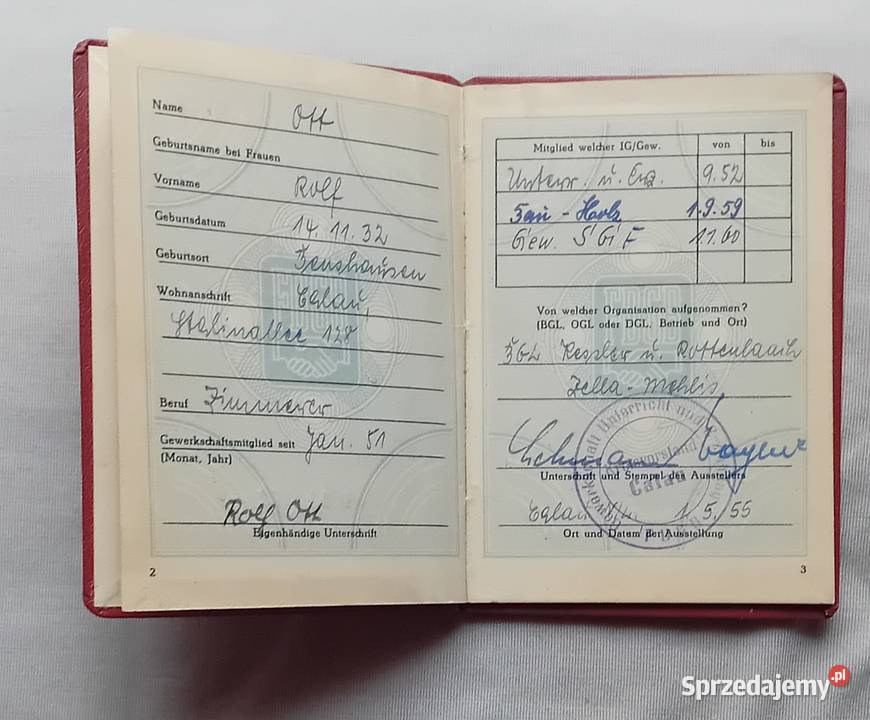 Name Ott
Geburtsname bei Frauen
Vorname Rolf
Geburtsdatum 14. 11. 32
Geburtsort Benshausen
Wohnanschrift
Stalinallee 128
Beruf Zimmerer
Gewerkschaftsmitglied seit Jan. 51
(Monat, Jahr)
Rolf Ott
Eigenhändige Unterschrift
2
Mitglied welcher IG/Gew. von bis
Unterr. u. Erz. 9.52
Bau - Holz 1.9.59
Gew. 1.1.60
Von welcher Organisation aufgenommen?
(BGL, OGL oder DGL, Betrieb und Ort)
BGL Kessler u. Rottenbach
Zella-Mehlis
Gewerkschaft Unterricht und
Kreisvorstand
Calau
Unterschrift und Stempel des Ausstellers
1. 5. 55
Ort und Datum der Ausstellung
3
FDGB
Sprzedajemy.pl